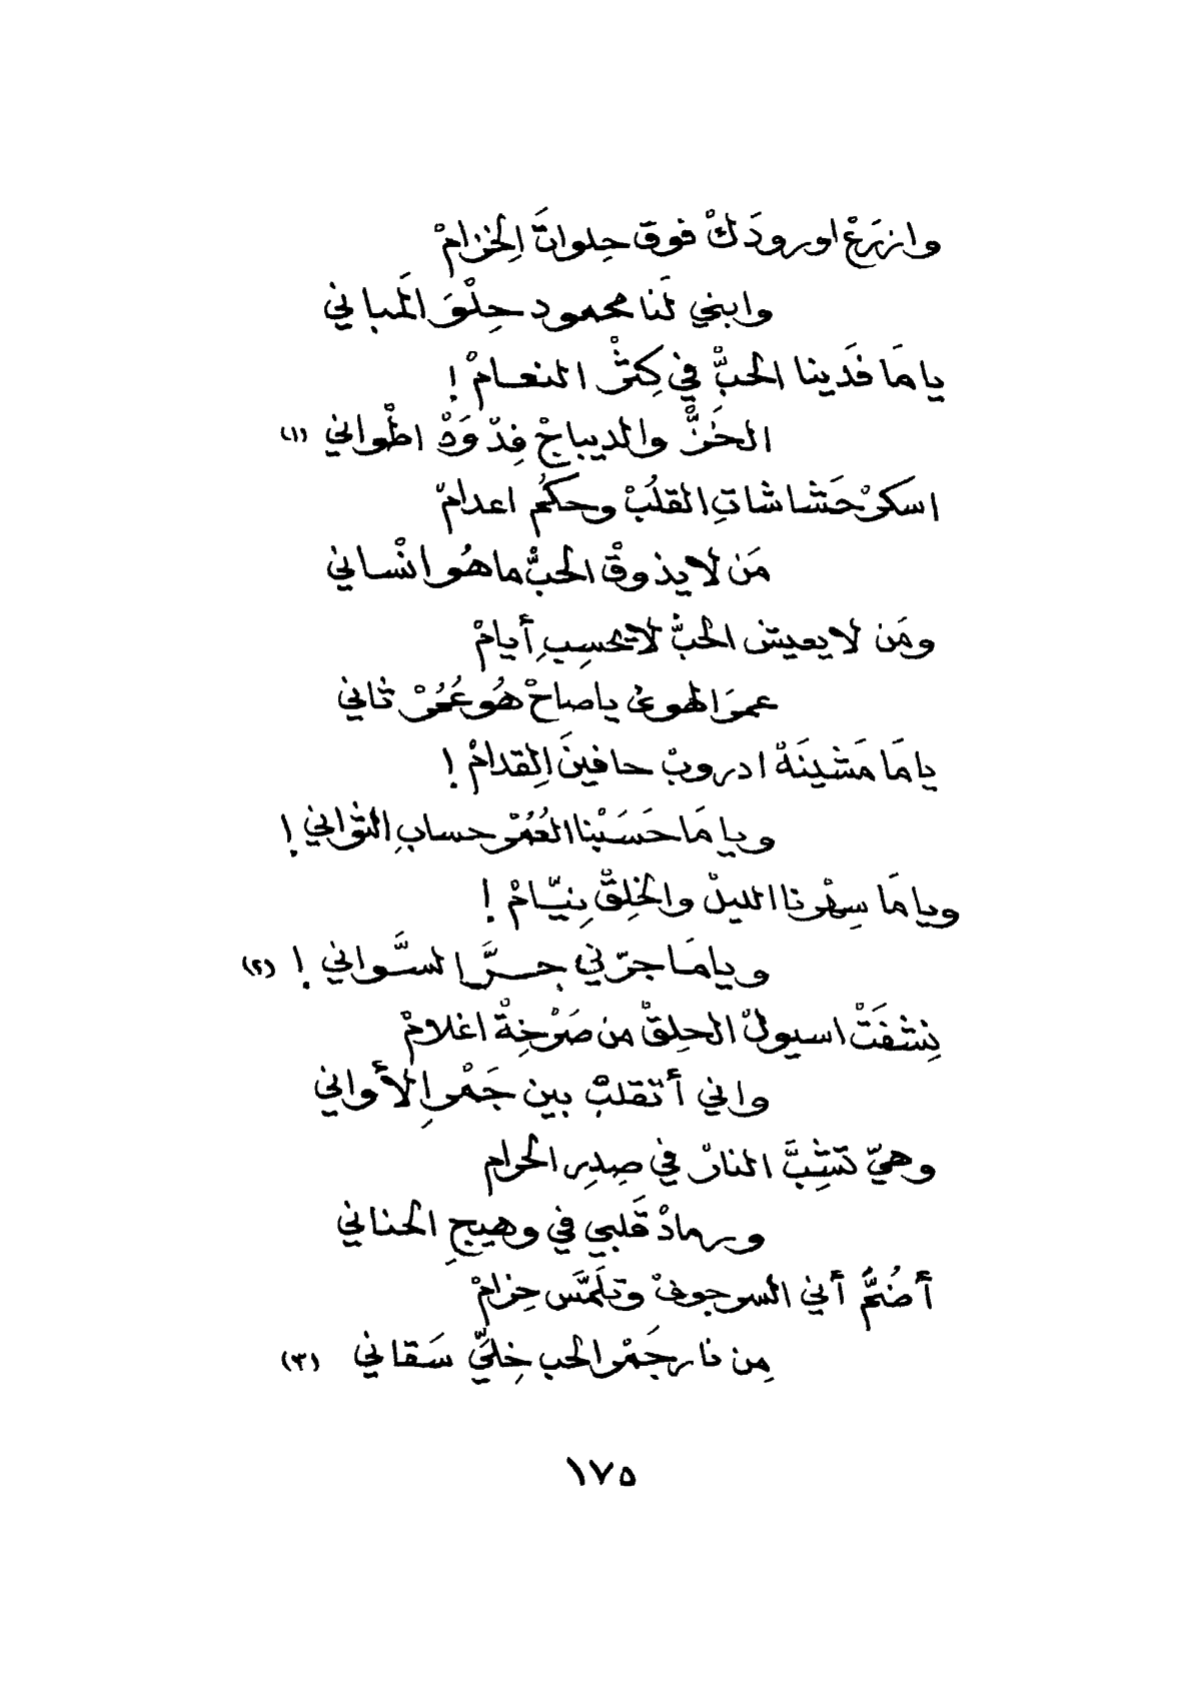 وازرَعْ اورودَكْ فوق حِلواتَ اِلخزامْ
وابني لَنا محمود حِلْوَ المَباني
ياما فَدَينا الحبّْ في كِثْرْ النعامْ !
الخَزّْ والديباجْ فِدْوَهْ اطْواني (١)
اسكرْ حَشاشاتِ القلُبْ وحكُم اعدامْ
مَن لا يذوقْ الحبّْ ما هُو انْساني
ومَن لا يعيش الحبّْ لا يحسِبِ أيامْ
عمرَ الهوىٰ ياصاحْ هُو عُمُرْ ثاني
ياما مَشينَهْ ادروبْ حافينَ اِلقدامْ !
وياما حَسَبْنا العُمُرْ حسابِ الثواني !
وياما سِهْرنا الليلْ والخِلقْ نِيّامْ !
وياما جرّني جرَّ السَّواني ! (٢)
نِشفَتْ اسيولْ الحِلقْ من صَرْخِةْ اغلامْ
واني أتقلبْ بين جَمْرِ الأواني
وهيّ تشِبَّ النارْ في صِدِر الحرام
ورمادْ قَلبي في وهيجِ الحناني
أضُمُّ أني السرجونْ وتلَمَّس حِزامْ
مِن نار جَمْر الحب خِليّ سَقاني (٣)
١٧٥